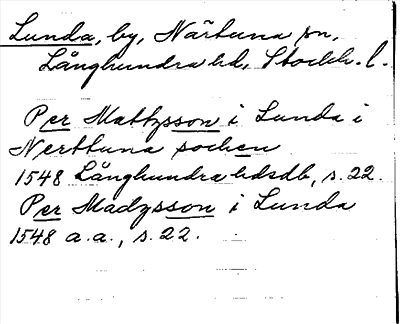 Lunda, by, Närtuna sn,
Långhundra hd, Stockh. l.
Per Mattzsson i Lunda i
Nerttuna sochen
1548 Långhundra hdsdb, s. 22.
Per Madzsson i Lunda
1548 a.a., s. 22.